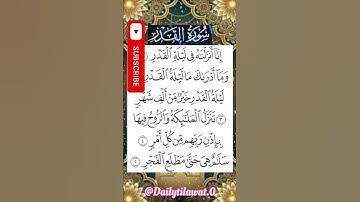 سُورَةُ القَدْرِ
SUBSCRIBE
إِنَّا أَنزَلْنَٰهُ فِى لَيْلَةِ الْقَدْرِ ١
وَمَا أَدْرَىٰكَ مَا لَيْلَةُ الْقَدْرِ
لَيْلَةُ الْقَدْرِ خَيْرٌ مِّنْ أَلْفِ شَهْرٍ
٣ تَنَزَّلُ الْمَلَٰٓئِكَةُ وَالرُّوحُ فِيهَا
بِإِذْنِ رَبِّهِم مِّن كُلِّ أَمْرٍ ٤
سَلَٰمٌ هِىَ حَتَّىٰ مَطْلَعِ الْفَجْرِ
@Dailytilawat.0